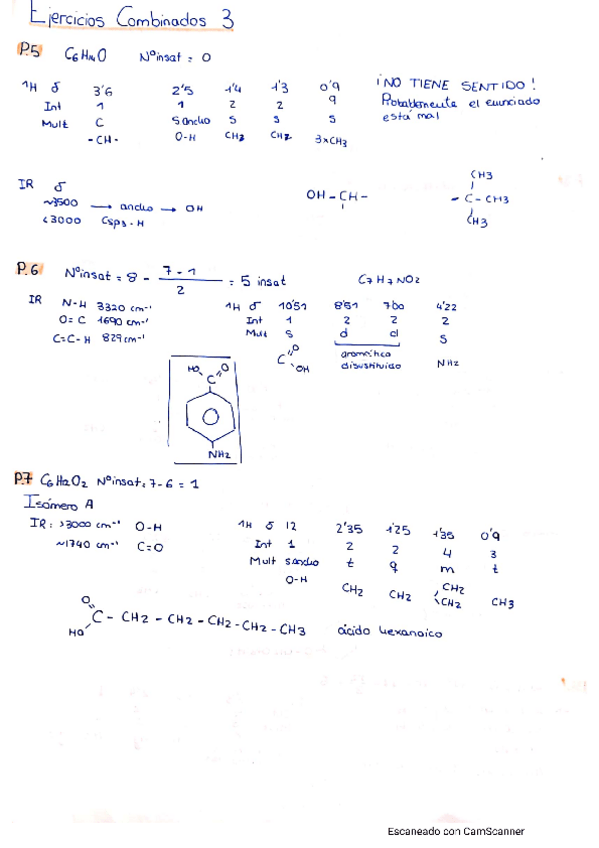 Ejercicios Combinados 3
P.5 C6H14O NºInsat = 0
1H δ 3'6 2'5 1'4 1'3 0'9 ¡NO TIENE SENTIDO!
Int 1 1 2 2 9 Probablemente el enunciado
Mult C S ancho S S S está mal
-CH- O-H CH2 CH2 3xCH3
IR δ
~3500 → ancho → OH
<3000 Csp3-H
OH - CH -
CH3
- C - CH3
CH3
P.6 NºInsat = 8 - 7-1 / 2 = 5 insat C7H7NO2
IR N-H 3320 cm-1
O=C 1690 cm-1
C=C-H 829 cm-1
1H δ 10'51 8'51 7'00 4'22
Int 1 2 2 2
Mult S d d S
C O OH aromático disustituido NH2
HO C O
NH2
P.7 C6H12O2 NºInsat = 7-6 = 1
Isómero A
IR: >3000 cm-1 O-H
~1740 cm-1 C=O
1H δ 12 2'35 1'25 1'35 0'9
Int 1 2 2 4 3
Mult S ancho t q m t
O-H CH2 CH2 CH2 CH2 CH3
O HO C - CH2 - CH2 - CH2 - CH2 - CH3 ácido hexanoico
Escaneado con CamScanner